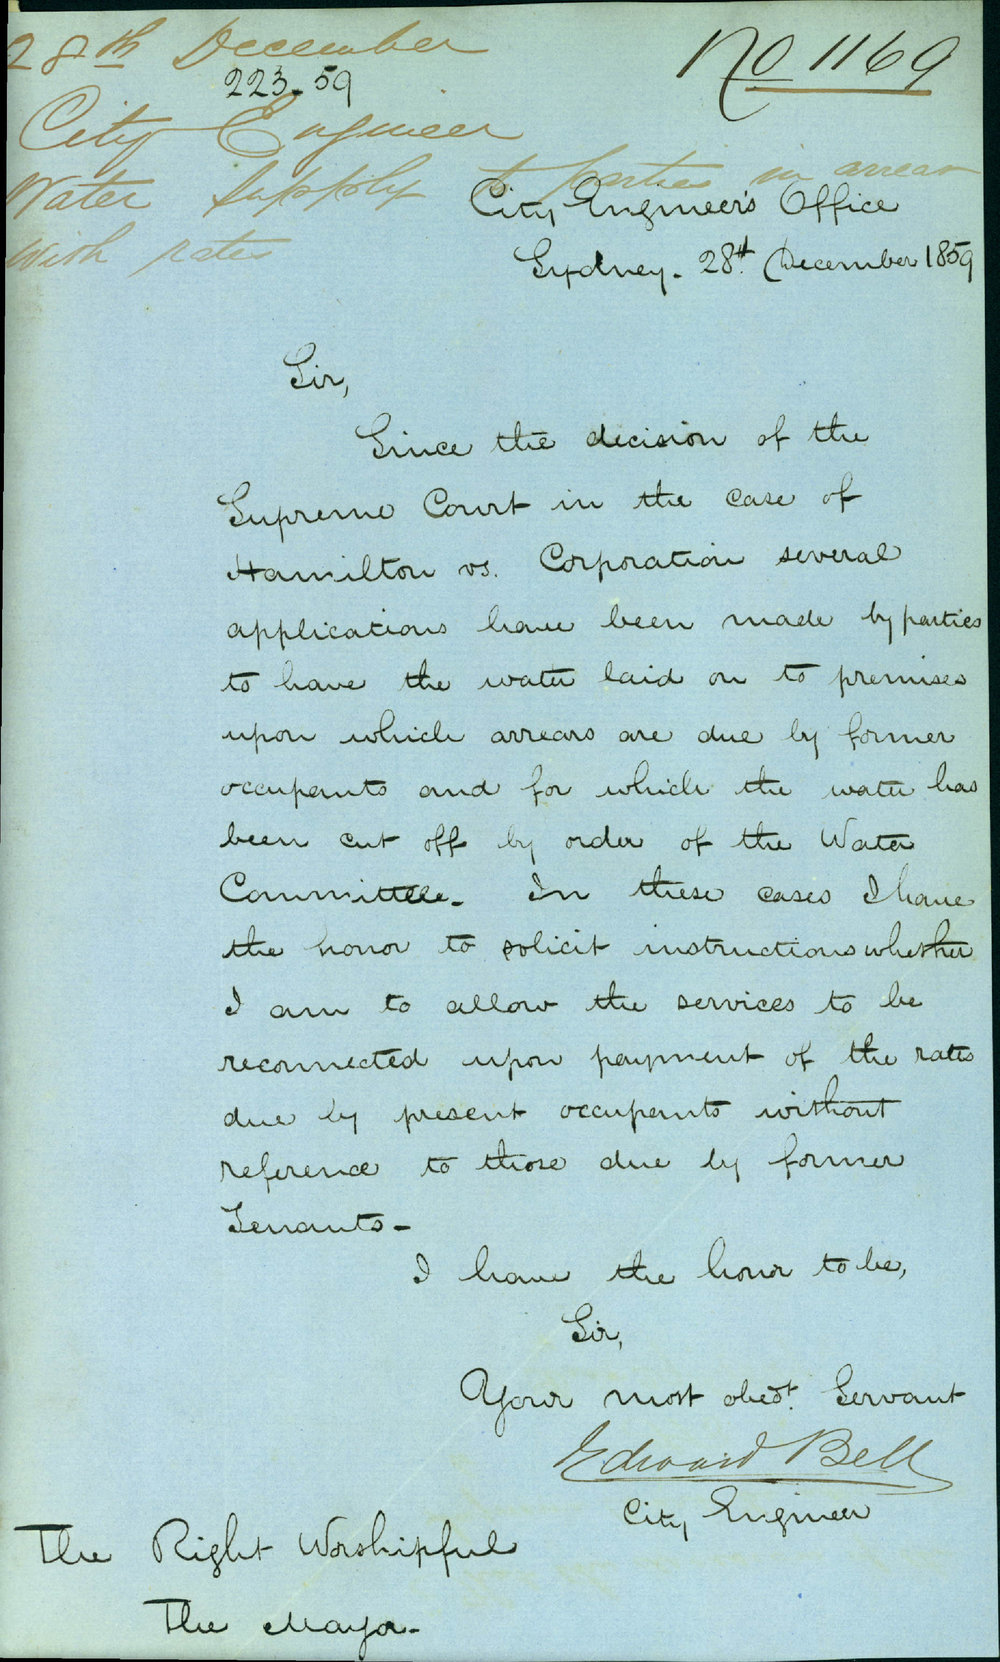 28th December
No 1169
223-59
City Engineer
Water Supply to parties in arrear
with rates
City Engineer's Office
Sydney. 28th. December 1859
Sir,
Since the decision of the
Supreme Court in the case of
Hamilton vs. Corporation several
applications have been made by parties
to have the water laid on to premises
upon which arrears are due by former
occupants and for which the water has
been cut off by order of the Water
Committee. In these cases I have
the honor to solicit instructions whether
I am to allow the services to be
reconnected upon payment of the rates
due by present occupants without
reference to those due by former
Tenants-
I have the honor to be,
Sir,
Your most obedt. Servant
Edward Bell
City Engineer
The Right Worshipful
The Mayor-